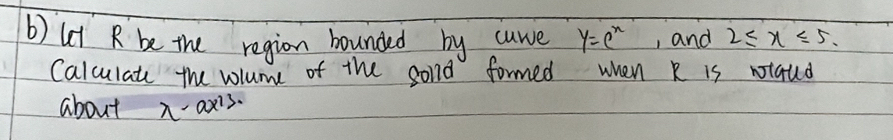 b) let R be the region bounded by curve y=eˣ, and 2 ≤ x ≤ 5.
Calculate the volume of the solid formed when R is rotated
about x-axis.